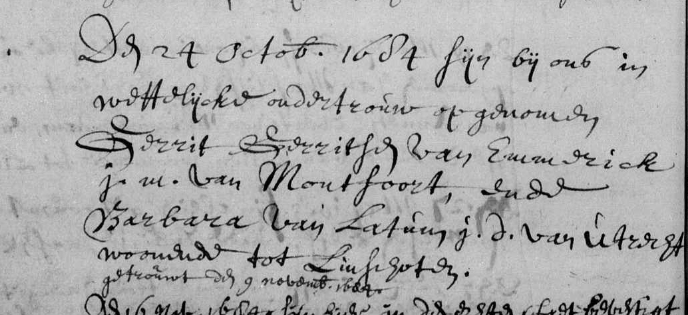 Den 24 Octob. 1684 sijn bij ons in
wettelijcke ondertrouw op genomen
Gerrit Gerritsen van Emmerick
j. m. van Montfoort, ende
Barbara van Latum j. d. van Utrecht
woonende tot Linschoten.
getrouwt den 9 novemb. 1684.
Den 16 Nov. 1684 sijn